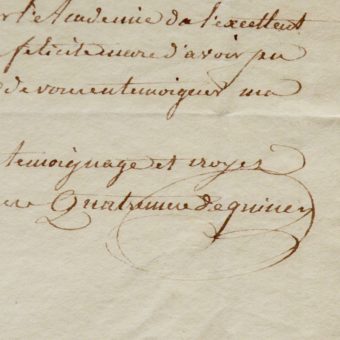 l'Academie de l'excellent
felicite mare d'avoir pu
de vous en temoigner ma
temoignage et croyes
Quatremere de quincy